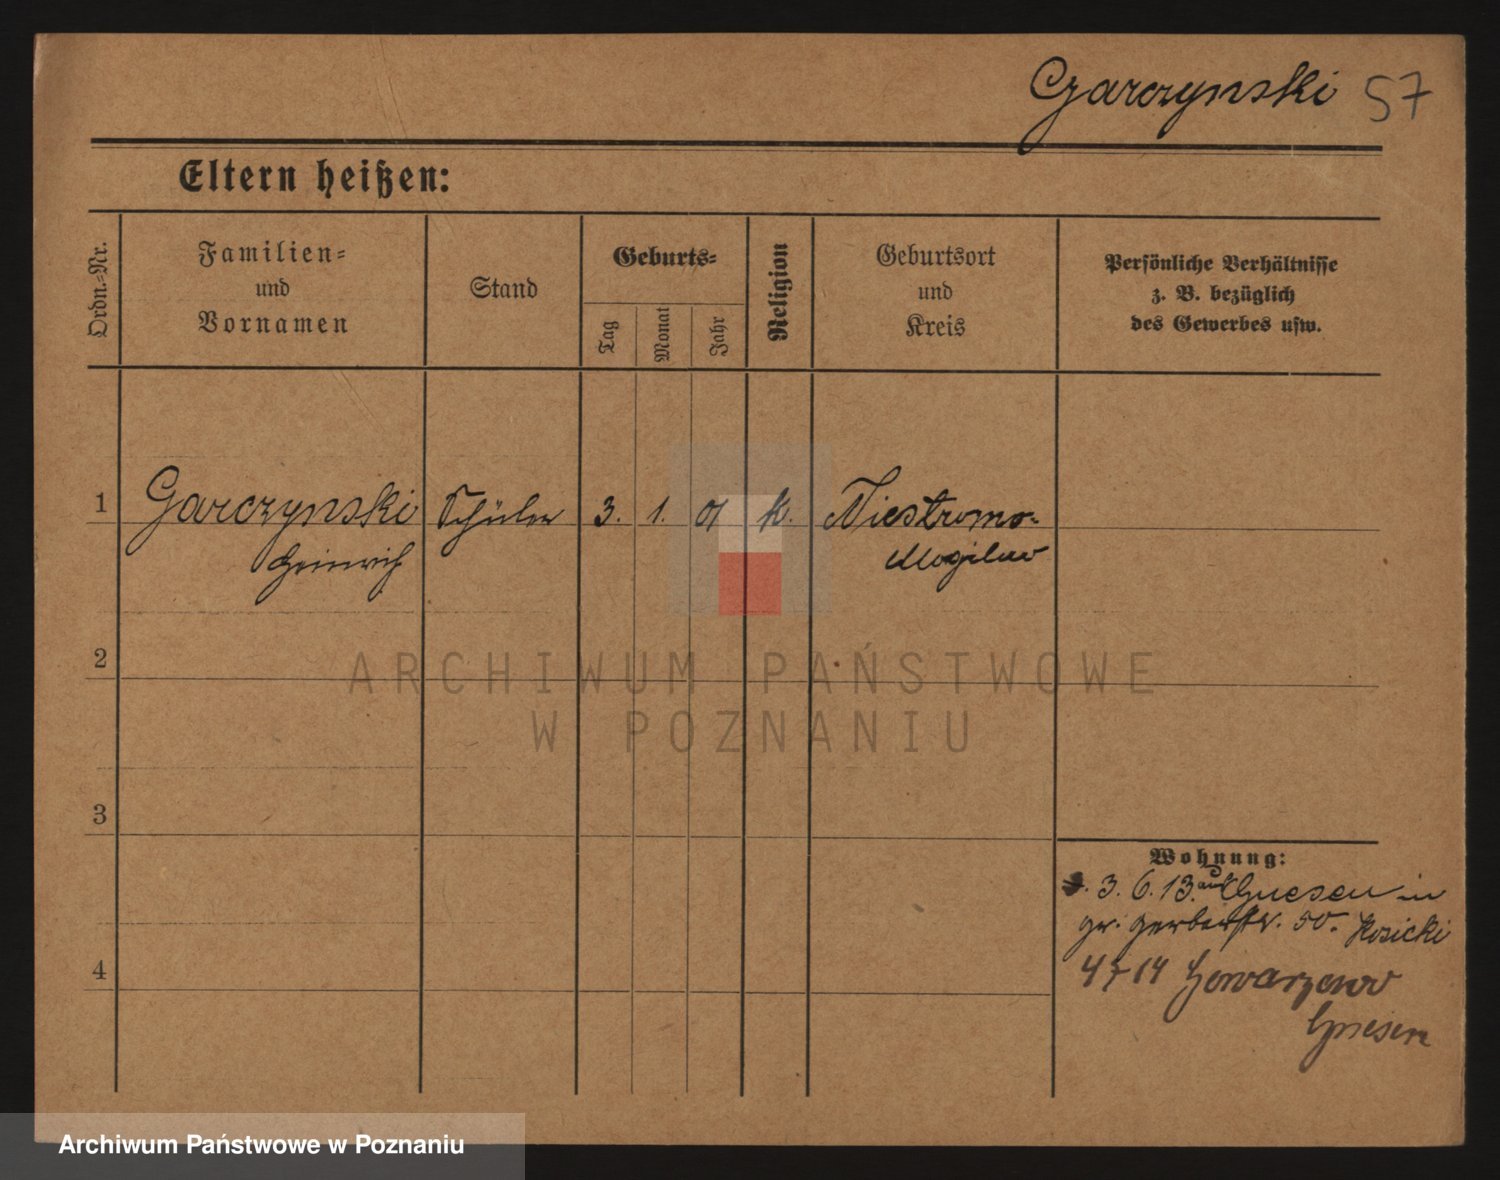 Garczynski 57
Eltern heißen:
Ordn.-Nr.
Familien-
und
Vornamen
Stand
Geburts-
Tag
Monat
Jahr
Religion
Geburtsort
und
Kreis
Persönliche Verhältnisse
z. B. bezüglich
des Gewerbes usw.
1 Garczynski Schüler 3. 1. 01 k. Niestromo-
Heinrich Mogilno
2
ARCHIWUM PAŃSTWOWE
W POZNANIU
3
Wohnung:
3. 6. 13. aus Gnesen in
gr. Gerberstr. 50. Kosicki
4
14
Gnesen
Archiwum Państwowe w Poznaniu